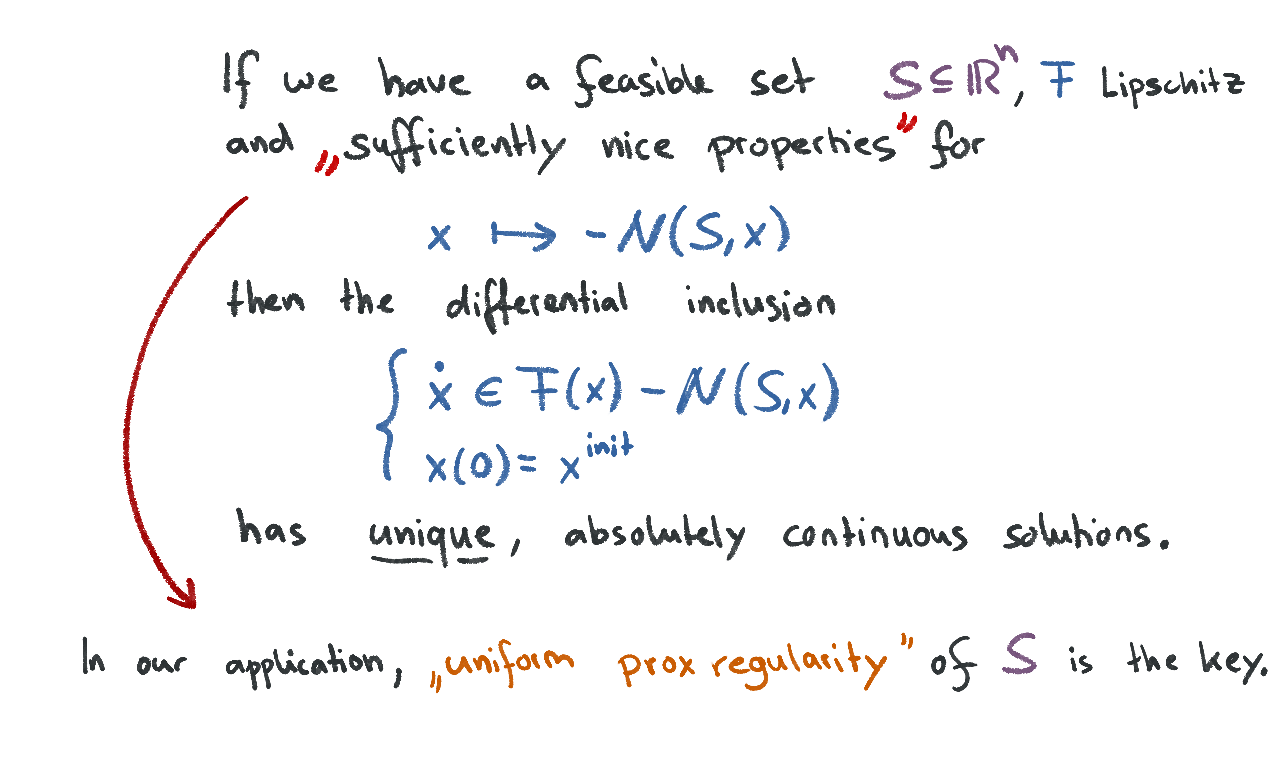 If we have a feasible set S ⊆ ℝⁿ, F Lipschitz
and „sufficiently nice properties” for
x ↦ -N(S,x)
then the differential inclusion
{ ẋ ∈ F(x) - N(S,x)
x(0) = x^init
has unique, absolutely continuous solutions.
In our application, „uniform prox regularity” of S is the key.